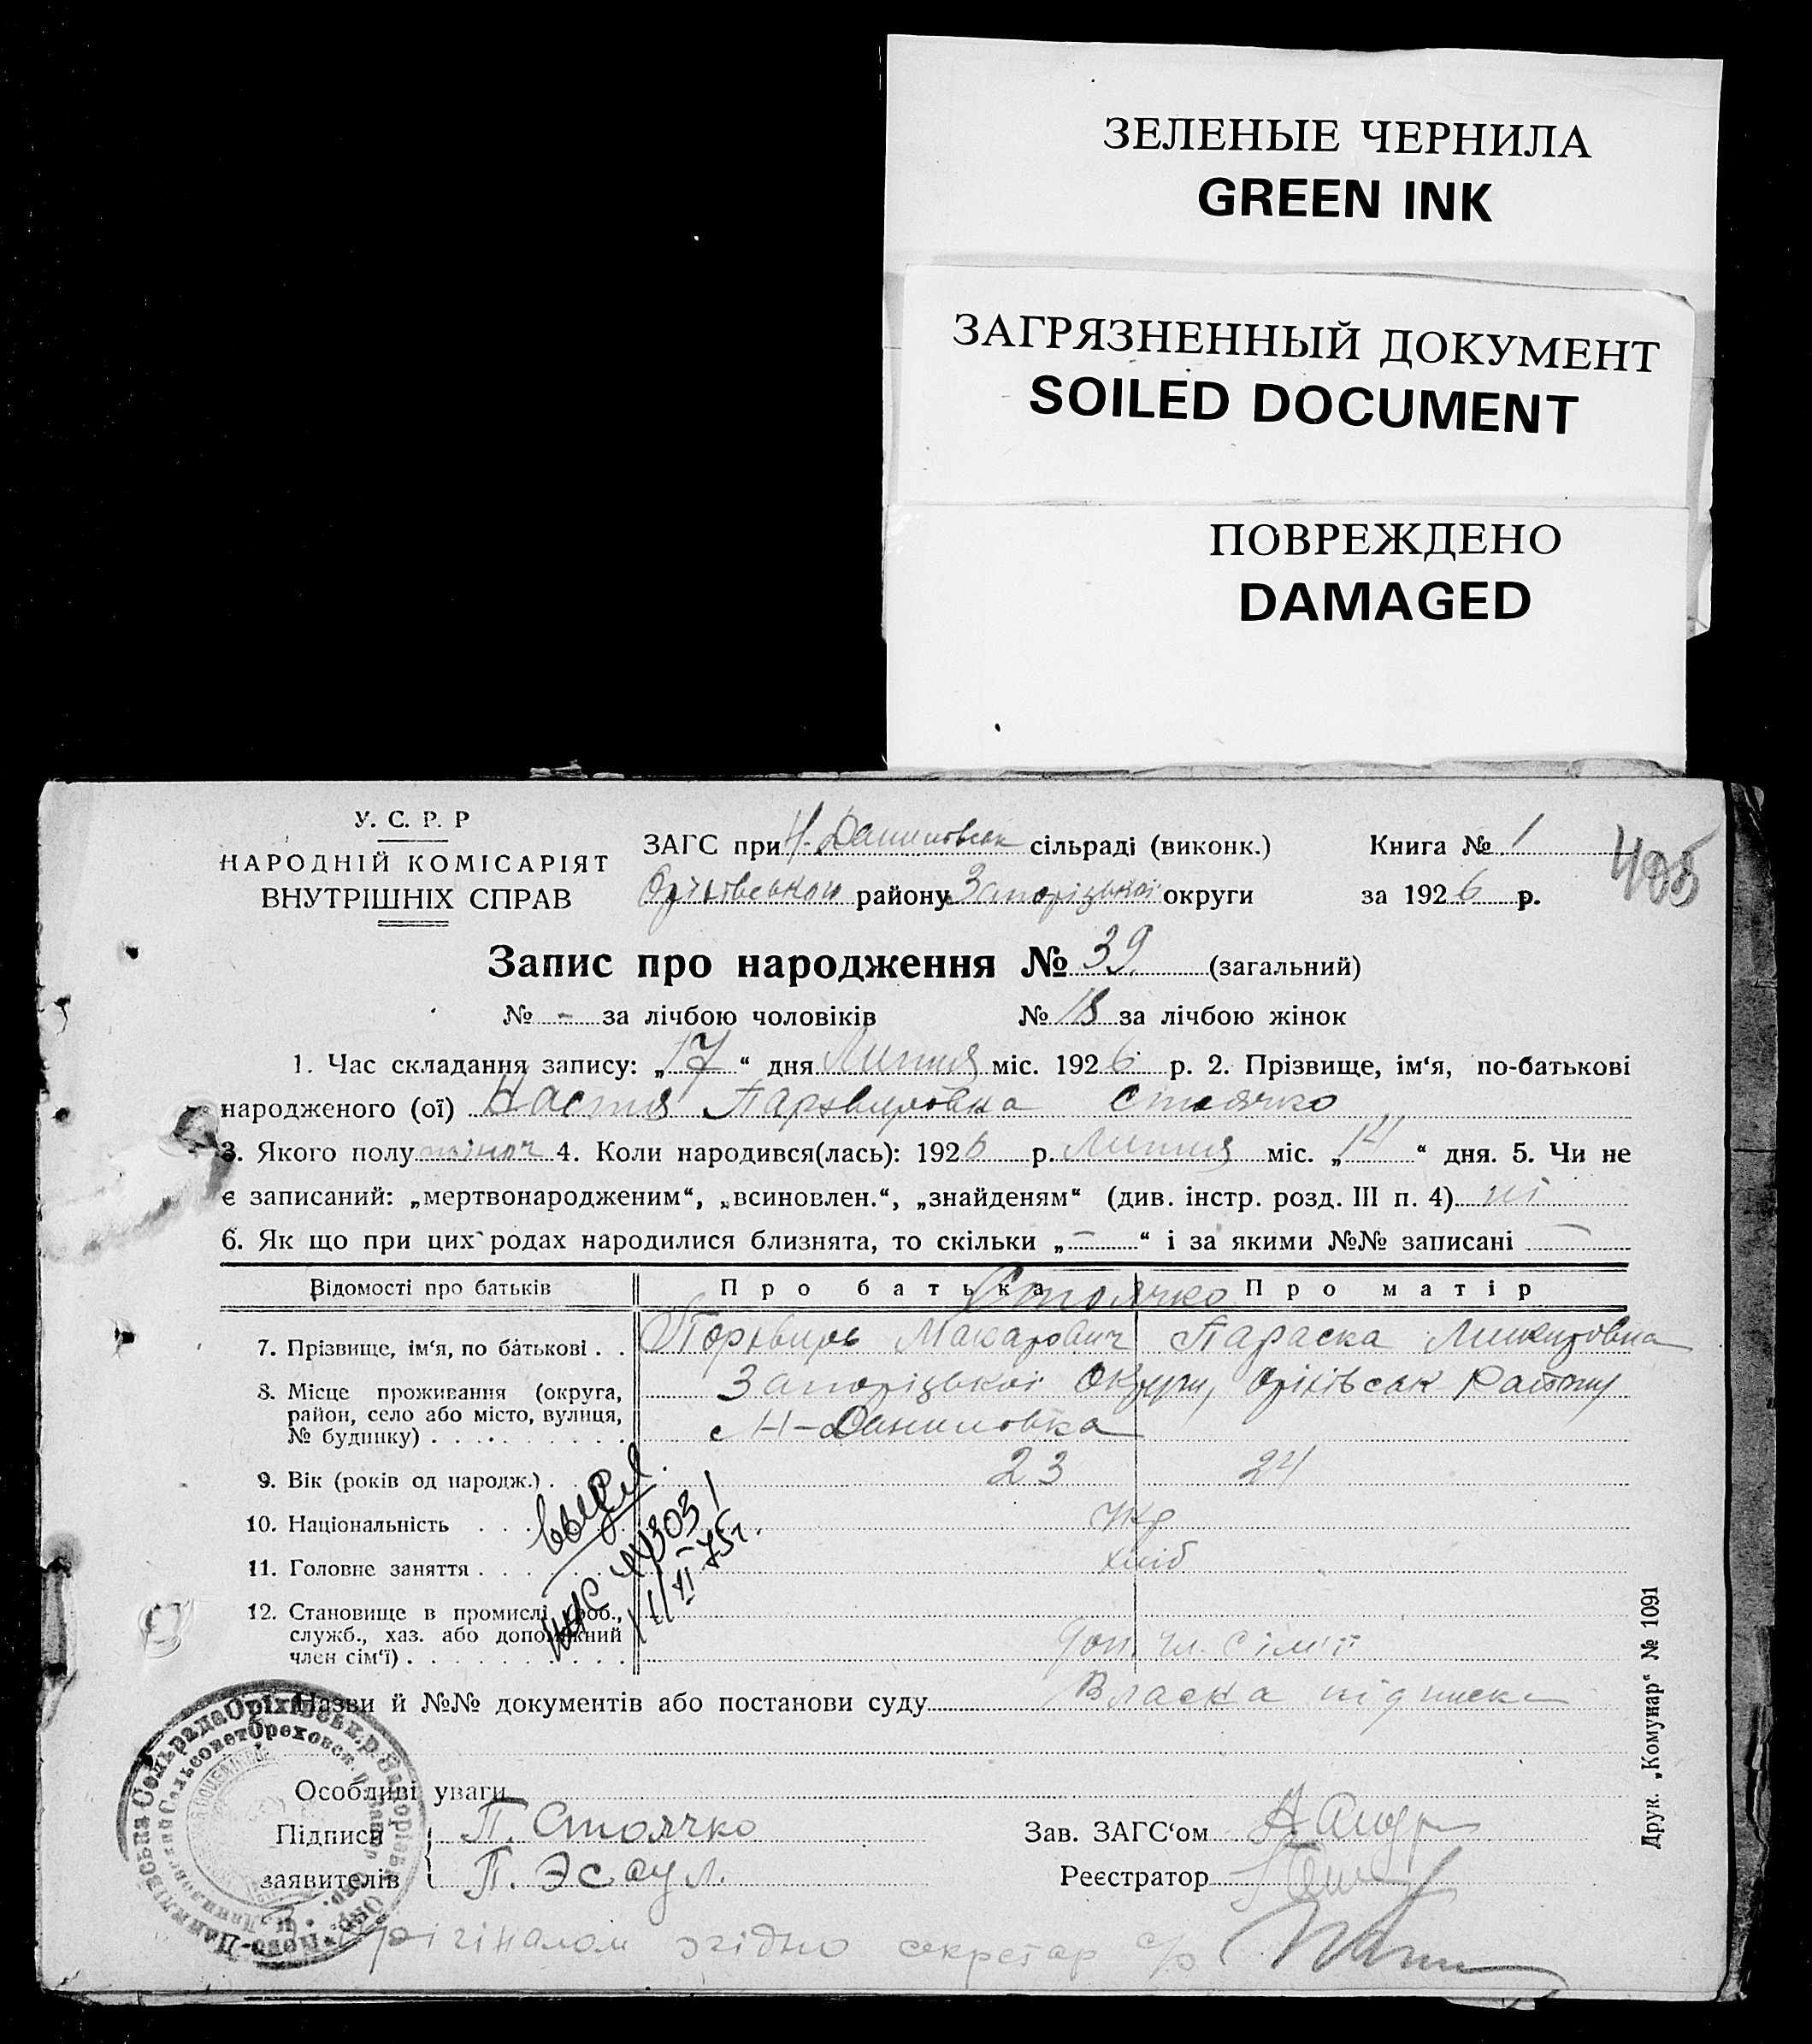 ЗЕЛЕНЫЕ ЧЕРНИЛА
GREEN INK
ЗАГРЯЗНЕННЫЙ ДОКУМЕНТ
SOILED DOCUMENT
ПОВРЕЖДЕНО
DAMAGED
У. С. Р. Р
НАРОДНІЙ КОМІСАРІЯТ
ВНУТРІШНІХ СПРАВ
ЗАГС при Н-Даниловськ сільраді (виконк.) Книга № 1
405
Оріхівському району Запоріцької округи за 1926 р.
Запис про народження № 39 (загальний)
№ - за лічбою чоловіків № 18 за лічбою жінок
1. Час складання запису: „17“ дня Липня міс. 1926 р. 2. Прізвище, ім‘я, по-батькові
народженого (ої) Настя Парвиловна Стоячко
3. Якого полу жіноч 4. Коли народився(лась): 1926 р. Липня міс. „14“ дня. 5. Чи не
є записаний: „мертвонародженим“, „всиновлен.“, „знайденям“ (див. інстр. розд. III п. 4) ні
6. Як що при цих родах народилися близнята, то скільки „-“ і за якими №№ записані -
Відомості про батьків Про батька Про матір
Стоячко
7. Прізвище, ім‘я, по батькові . . Порвиль Макарович Параска Микитовна
8. Місце проживання (округа, район, село або місто, вулиця, № будинку) . . . . . . . . . Запоріцької Округи, Оріхівськ Району
с Н-Даниловка
9. Вік (років од народж.) . 23 24
10. Національність . . . Укр
11. Головне заняття . . . . хліб
12. Становище в промислі (роб., служб., хаз. або допоміжний член сім‘ї) . . . . . . . . . . доп. чл. сім'ї
Назви й №№ документів або постанови суду Власна підписка
Особливі уваги
Підписи заявителів
П. Стоячко
П. Эсаул.
Зав. ЗАГС‘ом
Реєстратор
З орігіналом згідно секретар с/р
Друк. „Комунар“ № 1091